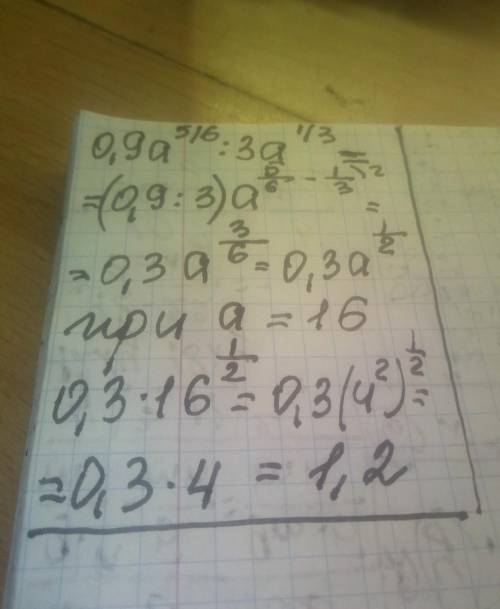 0,9a^5/6 : 3a^1/3 =
=(0,9:3)a^(5/6 - 1/3\2) =
=0,3a^(3/6) = 0,3a^(1/2)
при a=16
0,3·16^(1/2) = 0,3(4^2)^(1/2) =
=0,3·4 = 1,2